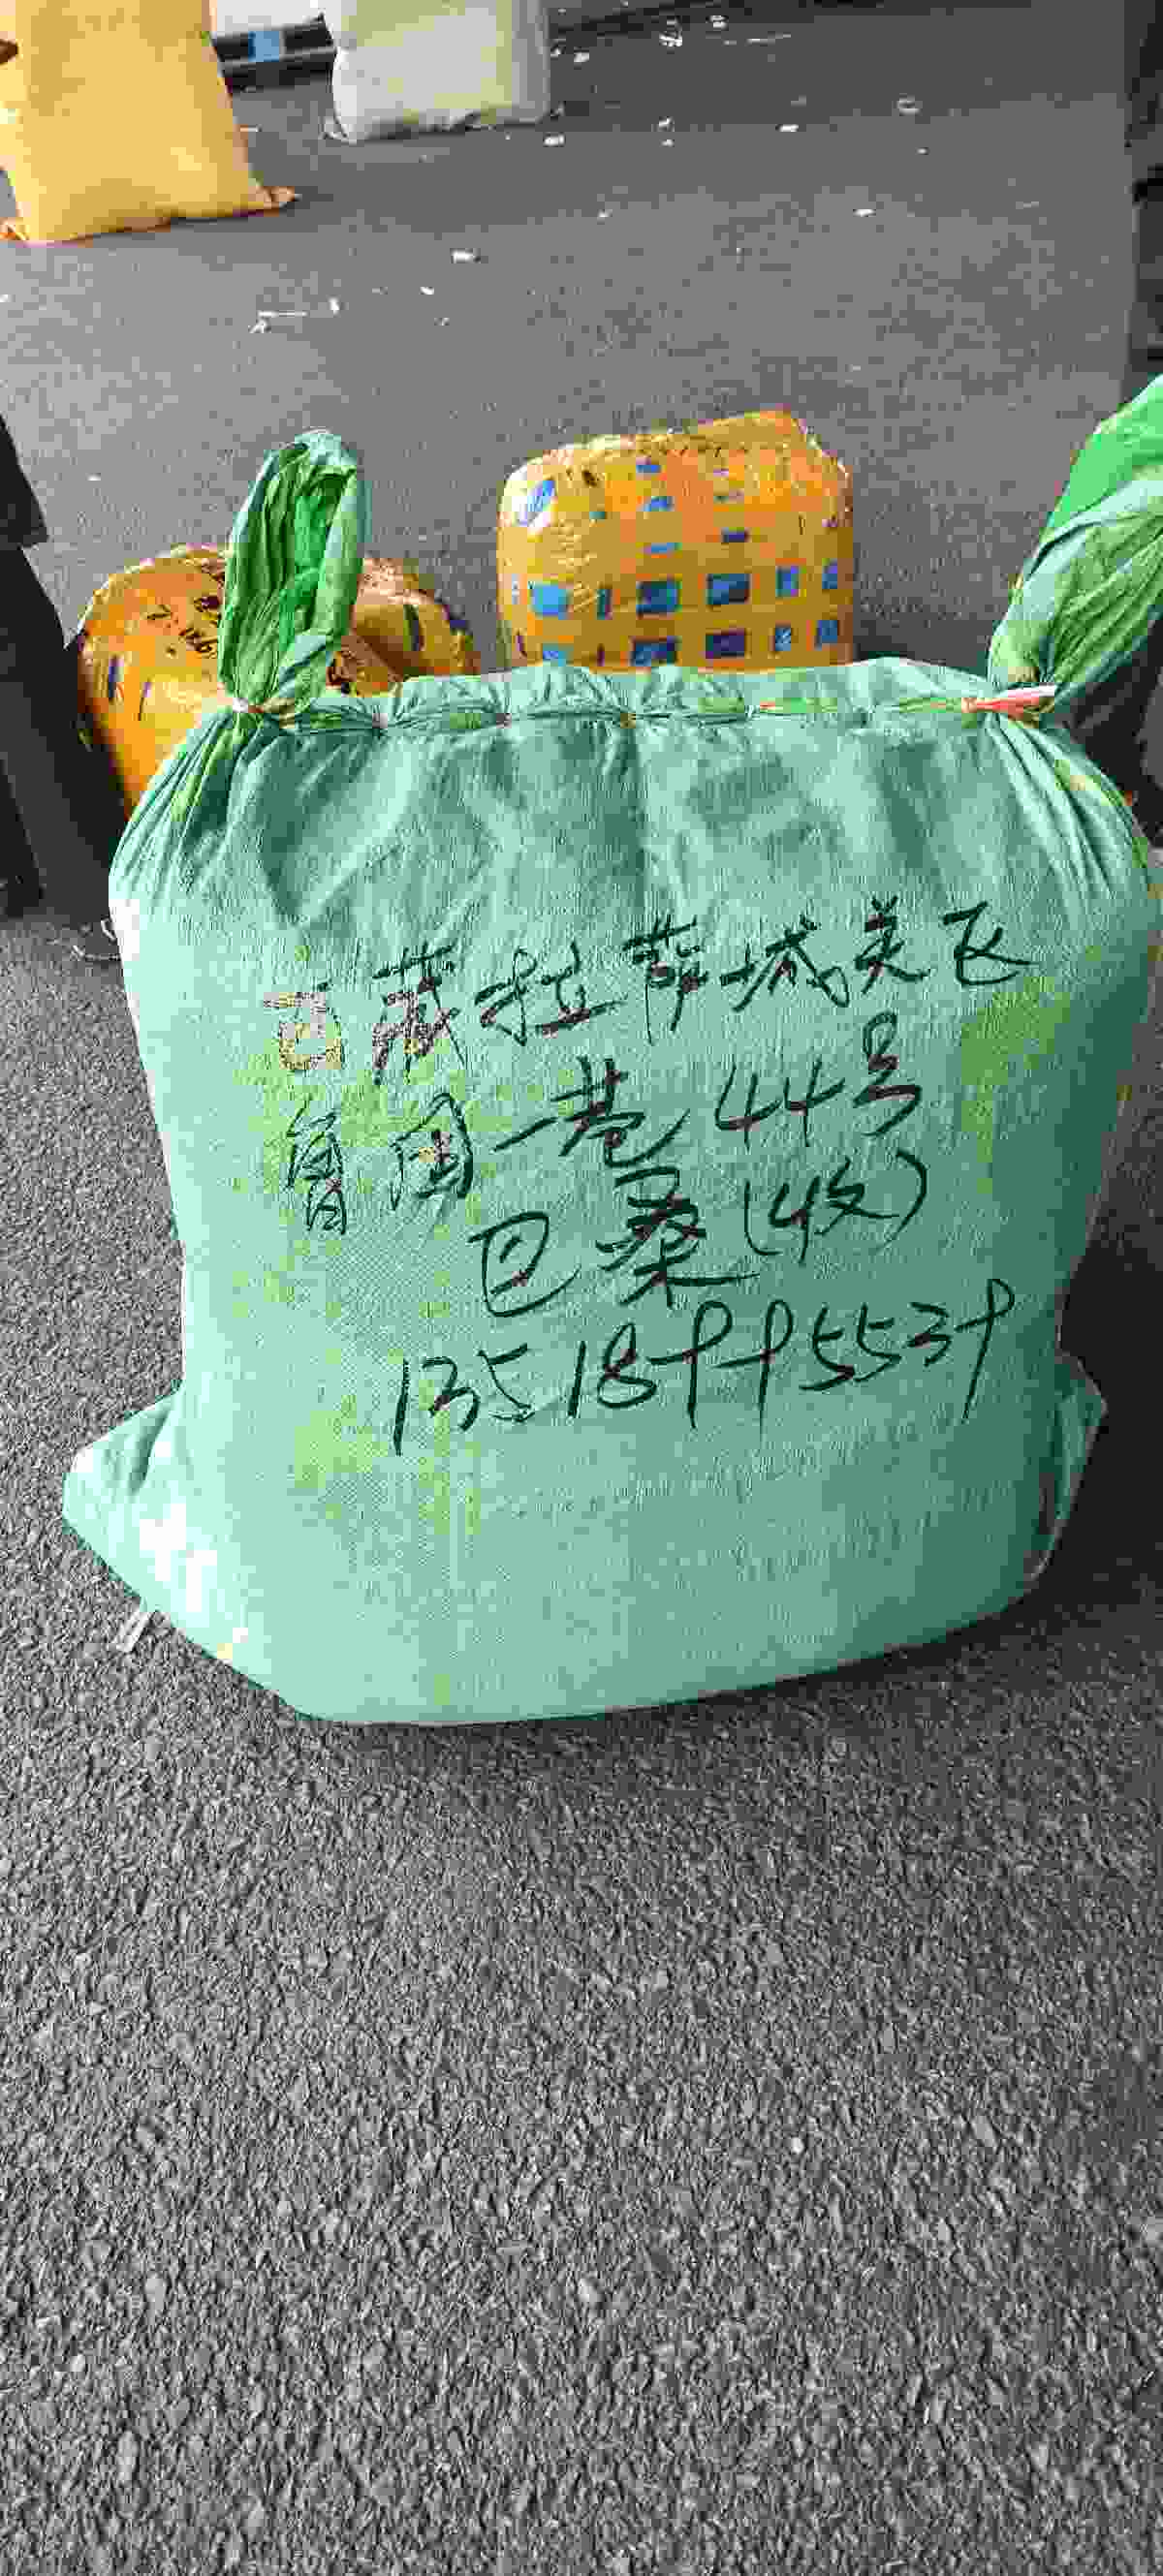 西藏拉萨城关区
鲁固一巷44号
巴桑(收)
13518995539